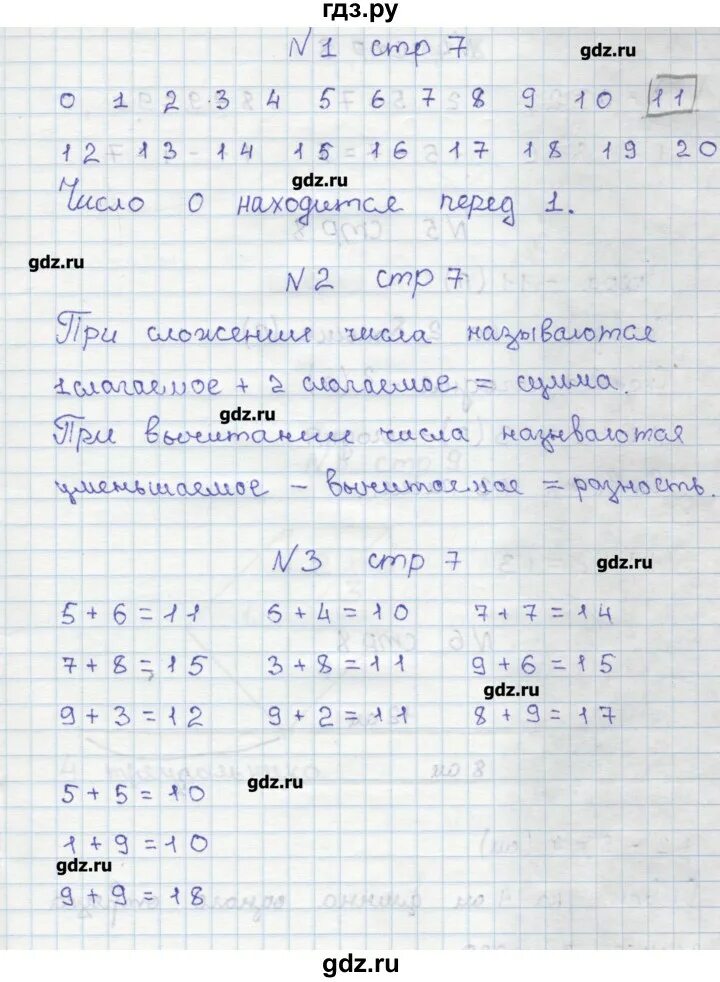 гдз.ру
N 1 стр 7
gdz.ru
0 1 2 3 4 5 6 7 8 9 10 11
12 13 14 15 16 17 18 19 20
gdz.ru
Число 0 находится перед 1.
gdz.ru
N 2 стр 7
При сложении числа называются
1 слагаемое + 2 слагаемое = сумма.
gdz.ru
При вычитании числа называются
уменьшаемое – вычитаемое = разность.
N 3 стр 7
gdz.ru
5 + 6 = 11 6 + 4 = 10 7 + 7 = 14
7 + 8 = 15 3 + 8 = 11 9 + 6 = 15
gdz.ru
9 + 3 = 12 9 + 2 = 11 8 + 9 = 17
gdz.ru
5 + 5 = 10
1 + 9 = 10
gdz.ru
9 + 9 = 18
gdz.ru